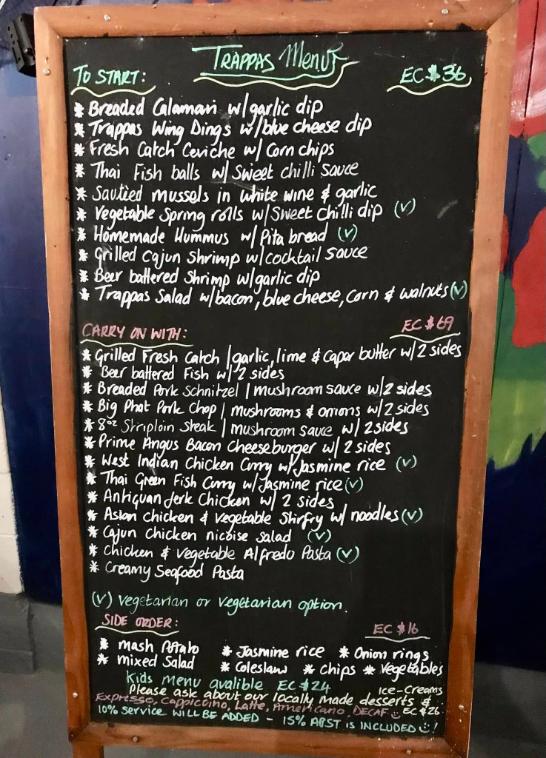 TRAPPAS Menu
TO START: EC $36
* Breaded Calamari w/garlic dip
* Trappas Wing Dings w/blue cheese dip
* Fresh Catch Ceviche w/ Corn chips
* Thai Fish balls w/ Sweet chilli sauce
* Sautied mussels in white wine & garlic
* Vegetable Spring rolls w/Sweet chilli dip (v)
* Homemade Hummus w/Pita bread (v)
* Grilled Cajun Shrimp w/cocktail sauce
* Beer battered Shrimp w/garlic dip
* Trappas Salad w/bacon, blue cheese, corn & walnuts (v)
CARRY ON WITH: EC $69
* Grilled Fresh Catch | garlic, lime & Capar butter w/2 sides
* Beer battered Fish w/2 sides
* Breaded Pork Schnitzel | mushroom sauce w/2 sides
* Big Phat Pork Chop | mushrooms & onions w/2 sides
* 8oz Striploin Steak | mushroom sauce w/ 2 sides
* Prime Angus Bacon Cheeseburger w/ 2 sides
* West Indian Chicken Curry w/Jasmine rice (v)
* Thai Green Fish Curry w/Jasmine rice (v)
* Antiguan Jerk Chicken w/ 2 sides
* Asian chicken & vegetable Stirfry w/ noodles (v)
* Cajun Chicken nicoise salad (v)
* Chicken & vegetable Alfredo Pasta (v)
* Creamy Seafood Pasta
(v) Vegetarian or Vegetarian option.
SIDE ORDER: EC $16
* mash Potato * Jasmine rice * Onion rings
* mixed Salad * Coleslaw * chips * Vegetables
Kids menu avalible EC $24
Please ask about our locally made desserts & Ice-Creams
Expresso, Cappiccino, Latte, Americano DECAF EC $26
10% Service WILL BE ADDED - 15% ABST is INCLUDED !